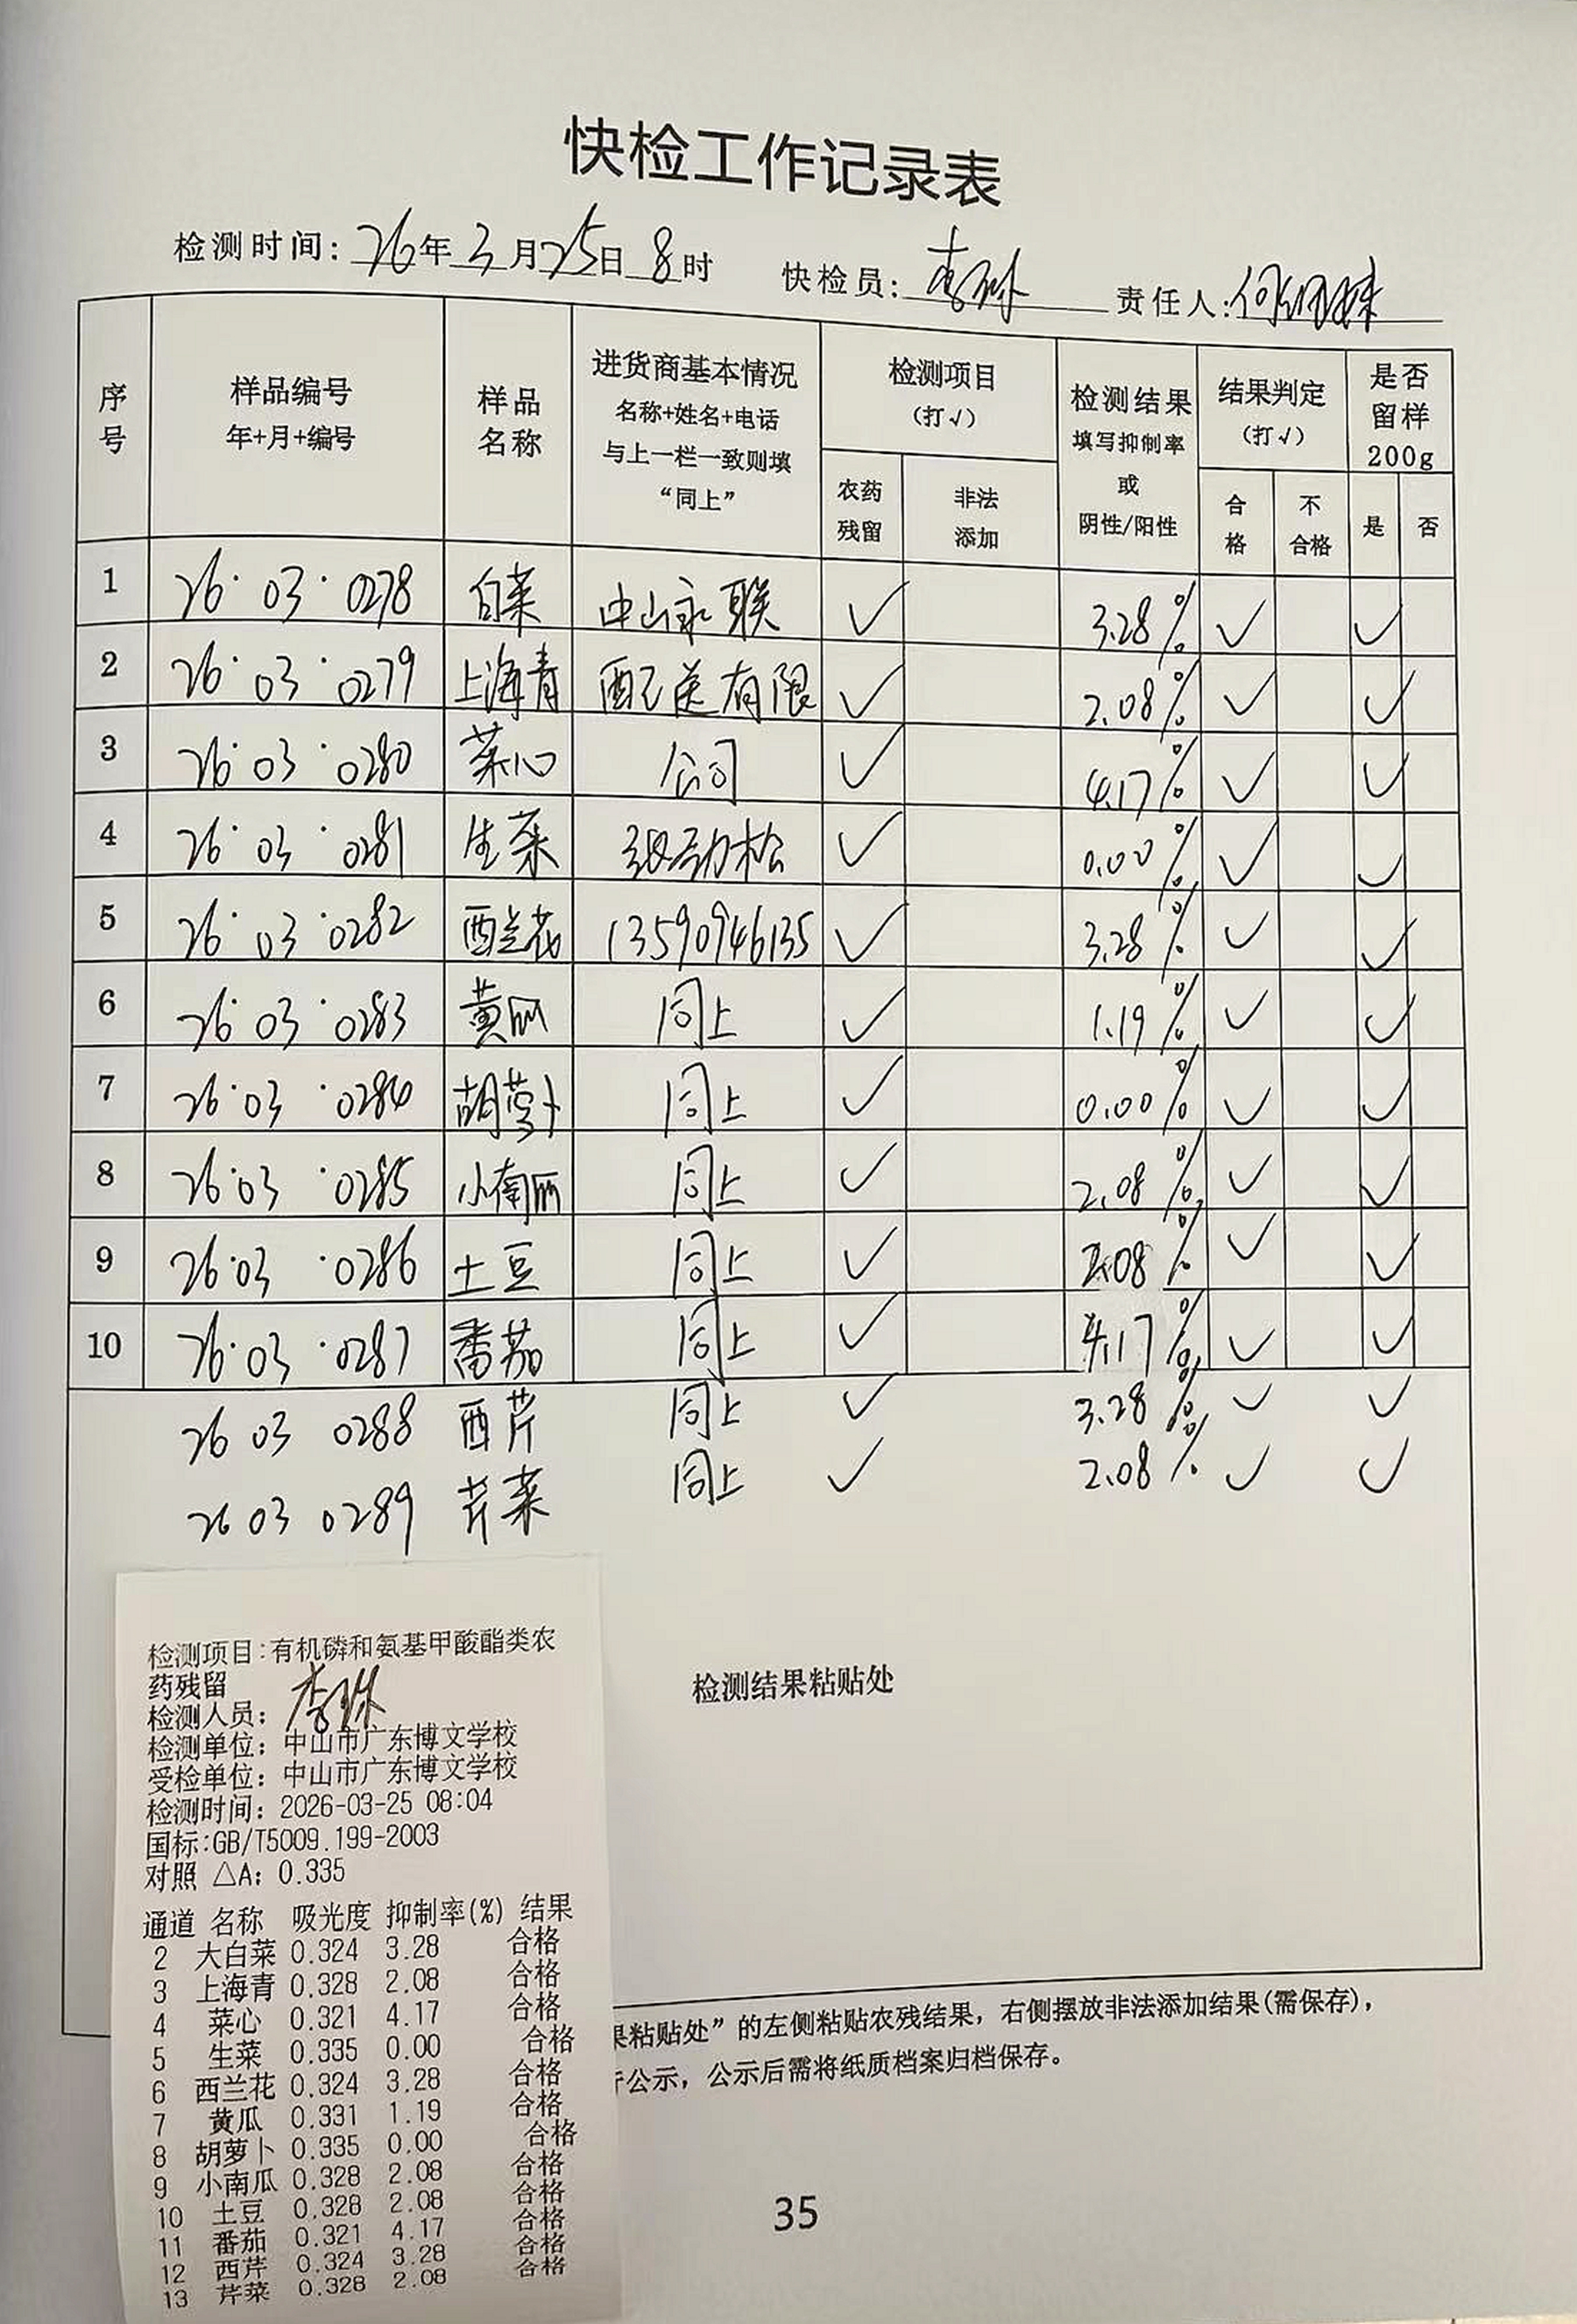 快检工作记录表
检测时间: 26年3月25日8时 快检员: 李琳 责任人:
序号 样品编号 年+月+编号 样品名称 进货商基本情况 名称+姓名+电话 与上一栏一致则填“同上” 检测项目 (打√) 农药残留 非法添加 检测结果 填写抑制率 或 阴性/阳性 结果判定 (打√) 合格 不合格 是否留样200g 是 否
1 26·03·0278 白菜 中山永联 ✓ 3.28% ✓ ✓
2 26·03·0279 上海青 配送有限 ✓ 2.08% ✓ ✓
3 26·03·0280 菜心 公司 ✓ 4.17% ✓ ✓
4 26·03·0281 生菜 张劲松 ✓ 0.00% ✓ ✓
5 26·03·0282 西兰花 13590946135 ✓ 3.28% ✓ ✓
6 26·03·0283 黄瓜 同上 ✓ 1.19% ✓ ✓
7 26·03·0284 胡萝卜 同上 ✓ 0.00% ✓ ✓
8 26·03·0285 小南瓜 同上 ✓ 2.08% ✓ ✓
9 26·03·0286 土豆 同上 ✓ 2.08% ✓ ✓
10 26·03·0287 番茄 同上 ✓ 4.17% ✓ ✓
26 03 0288 西芹 同上 ✓ 3.28% ✓ ✓
26 03 0289 芹菜 同上 ✓ 2.08% ✓ ✓
检测结果粘贴处
检测项目:有机磷和氨基甲酸酯类农
药残留
检测人员: 李琳
检测单位: 中山市广东博文学校
受检单位: 中山市广东博文学校
检测时间: 2026-03-25 08:04
国标:GB/T5009.199-2003
对照 △A: 0.335
通道 名称 吸光度 抑制率(%) 结果
2 大白菜 0.324 3.28 合格
3 上海青 0.328 2.08 合格
4 菜心 0.321 4.17 合格
5 生菜 0.335 0.00 合格
6 西兰花 0.324 3.28 合格
7 黄瓜 0.331 1.19 合格
8 胡萝卜 0.335 0.00 合格
9 小南瓜 0.328 2.08 合格
10 土豆 0.328 2.08 合格
11 番茄 0.321 4.17 合格
12 西芹 0.324 3.28 合格
13 芹菜 0.328 2.08 合格
果粘贴处”的左侧粘贴农残结果，右侧摆放非法添加结果(需保存)，
公示，公示后需将纸质档案归档保存。
35